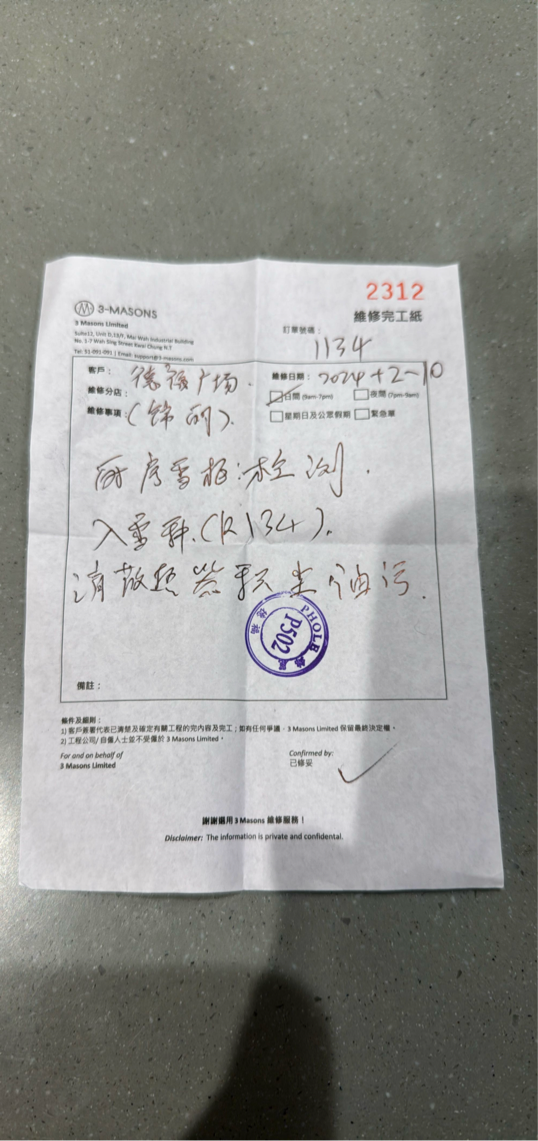 2312
3-MASONS
維修完工紙
3 Masons Limited
訂單號碼：
1134
No. 5-7 Wah Sing Street Kwai Chung N.T
客戶： 德福广场. 維修日期： 2024+2-10
維修分店： 日間 (9am-7pm) 夜間 (7pm-9am)
維修事項： 星期日及公眾假期 緊急單
厨房雪柜: 检测.
入雪种.(R134).
清散热器积尘油污.
PHOLE
P502
備註：
條件及細則：
1) 客戶簽署代表已清楚及確定有關工程的完內容及完工；如有任何爭議，3 Masons Limited 保留最終決定權。
2) 工程公司/ 自僱人士並不受僱於 3 Masons Limited。
For and on behalf of
3 Masons Limited
Confirmed by:
已修妥
謝謝選用 3 Masons 維修服務！
Disclaimer: The information is private and confidential.